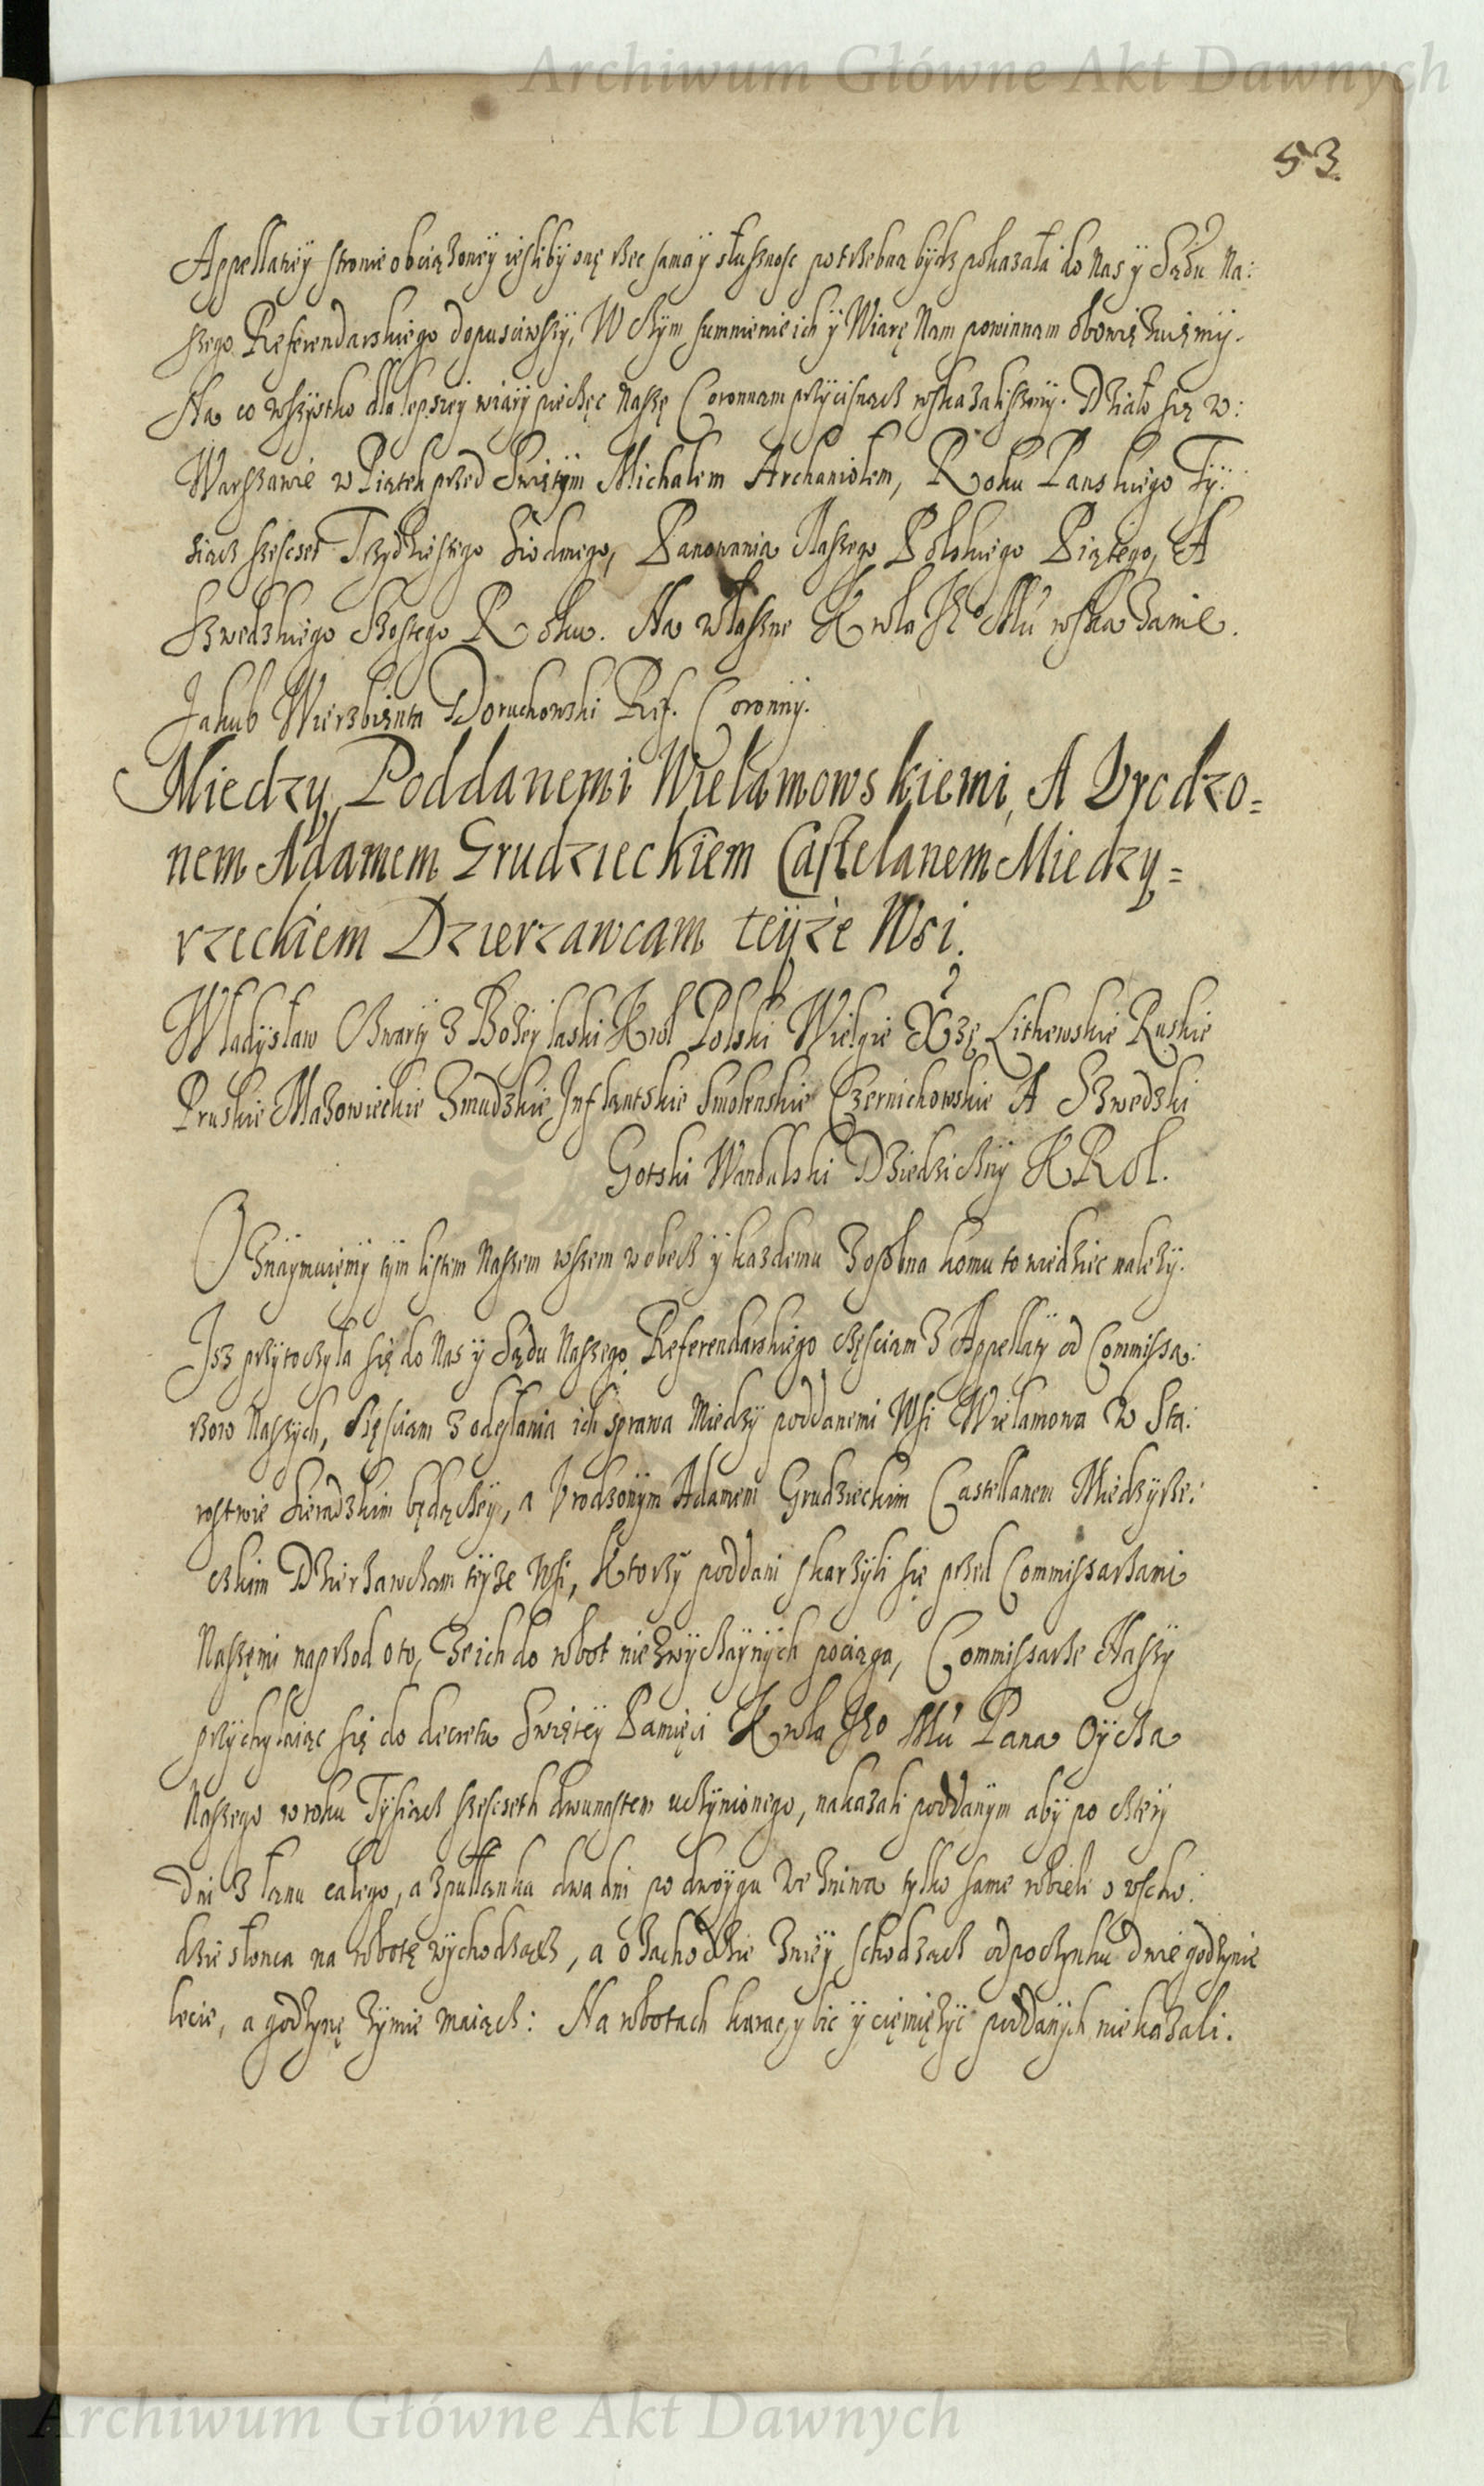 Archiwum Główne Akt Dawnych
53.
Appellatiey stronie obciążoney iesliby onę rzec sama y słusznosc potrzebną bydz pokazała do Nas y Sądu Na:
szego Referendarskiego dopusciwszy, W czym summienie ich y Wiarę Nam powinnam obowięzuięmy.
Na co wszystko dla lepszey wiary pieczęc Naszę Coronnam przycisnącz wskazalismy. Działo się w:
Warszawie w Piątek przed Swiętym Michałem Archaniołem, Roku Panskiego Ty:
siącz szescset Trzydziestego Siodmego, Panowania Naszego Polskiego Piątego, A
Szwedzkiego Szostego Roku. Na własne Krola Je° Mci wskazanie.
Jakub Wierzbięta Doruchowski Ref. Coronny.
Miedzy Poddanemi Wielamowskiemi, A Vrodzo=
nem Adamem Grudzieckiem Castelanem Miedzy=
rzeckiem Dzierzawcam teyże Wsi.
Władysław Czwarty z Bożey łaski Krol Polski Wielgie Xżę Lithewskie Ruskie
Pruskie Mazowieckie Zmudzkie Inflantskie Smolenskie Czernichowskie A Szwedzki
Gotski Wandalski Dziedziczny KRol.
Oznaymuięmy tym listem Naszem wszem wobecz y kazdemu zosobna komu to wiedziec nalezy.
Jsz przytoczyła się do Nas y Sądu Naszego Referendarskiego częsciam z Appellaty od Commissa:
rzow Naszych, częsciam z odesłania ich sprawa Miedzy poddanemi Wsi Wielamowa w Sta:
rostwie Sieradzkim będączey, a Vrodzonym Adamem Grudzieckim Castellanem Miedzyrze:
czkim Dzierzawczam teyze Wsi, Ktorzy poddani skarzyli się przed Commissarzami
Naszęmi naprzod oto, Ze ich do robot niezwyczaynych pociąga, Commissarze Naszy
przychylaiąc się do decretu Swiętey Pamięci Krola J° Mci Pana Oycza
Naszego w roku Tysiącz szescseth dwunastem uczynionego, nakazali poddanym aby po cztery
dni z łanu całego, a z pułłanku dwa dni po dwoygu we Zniwa tylko same robieli o wscho:
dzie słonca na robotę wychodzącz, a o zachodzie zniey schodzacz odpoczynku dwie godzynie
lecie, a godzynę zymie maiącz: Na robotach karac, y bic y cięmiężyc poddanych nie kazali.
Archiwum Główne Akt Dawnych